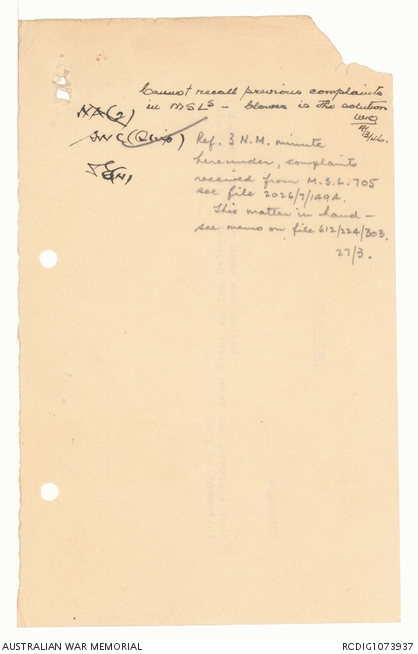 Cannot recall previous complaints
in MSLs - blower is the solution
NA(2)
Ref. 3 N.M. minute
hereunder, complaints
received from M.S.L. 705
see file 2026/7/149A.
This matter in hand -
see memo on file 612/224/303.
27/3.
AUSTRALIAN WAR MEMORIAL
RCDIG1073937